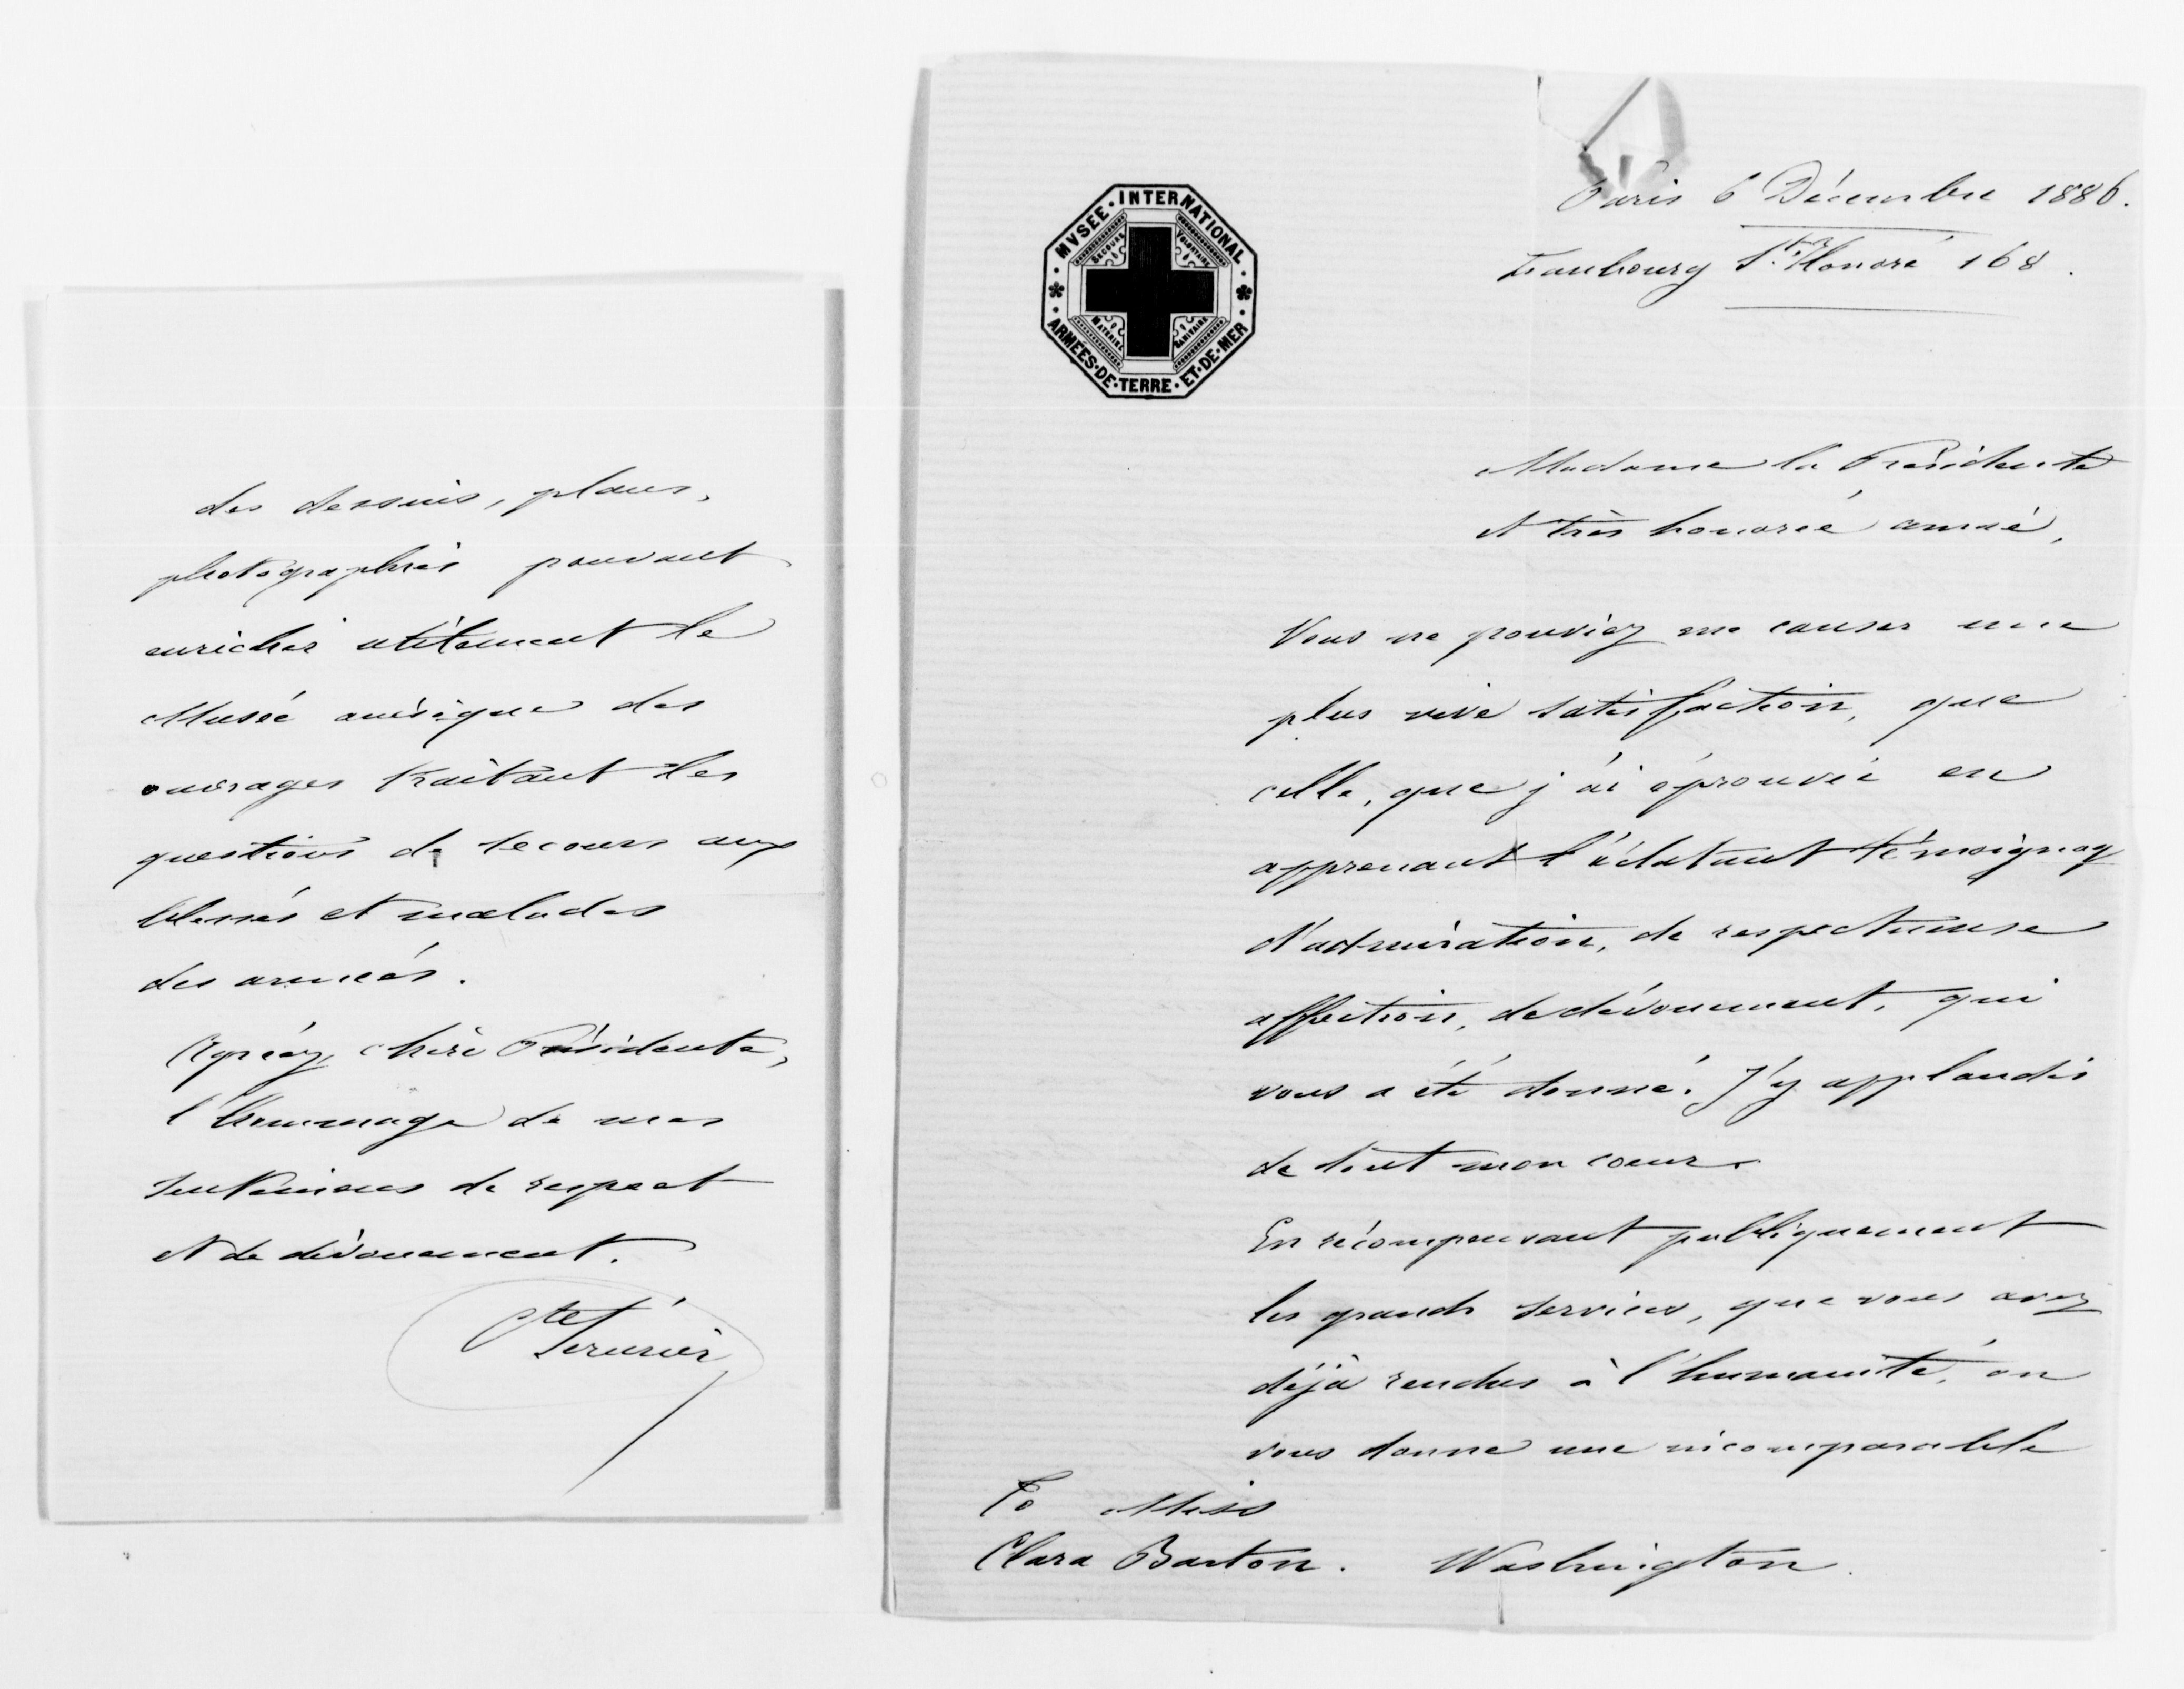 MVSEE · INTERNATIONAL
SECOURS VOLONTAIRE
MATERIEL SANITAIRE
ARMEES · DE · TERRE · ET · DE · MER
Paris 6 Décembre 1886.
Faubourg St. Honoré 168.
Madame la Présidente
et très honorée amie,
Vous ne pouviez me causer une
plus vive satisfaction, que
celle, que j'ai éprouvée en
apprenant l'éclatant témoignag
d'admiration, de respectueuse
affection, de dévouement, qui
vous a été donné. J'y applaudis
de tout mon coeur.
En récompensant publiquement
les grands services, que vous avez
déjà rendus à l'humanité, on
vous donne une incomparable
To Miss
Clara Barton. Washington.
des dessins, plans,
photographies pouvant
enrichir utilement le
Musée des
ouvrages traitant les
questions de secours aux
blessés et malades
des armées.
Agréez, chère Présidente,
l'hommage de mes
sentimens de respect
et de dévouement.
Cte Sérurier